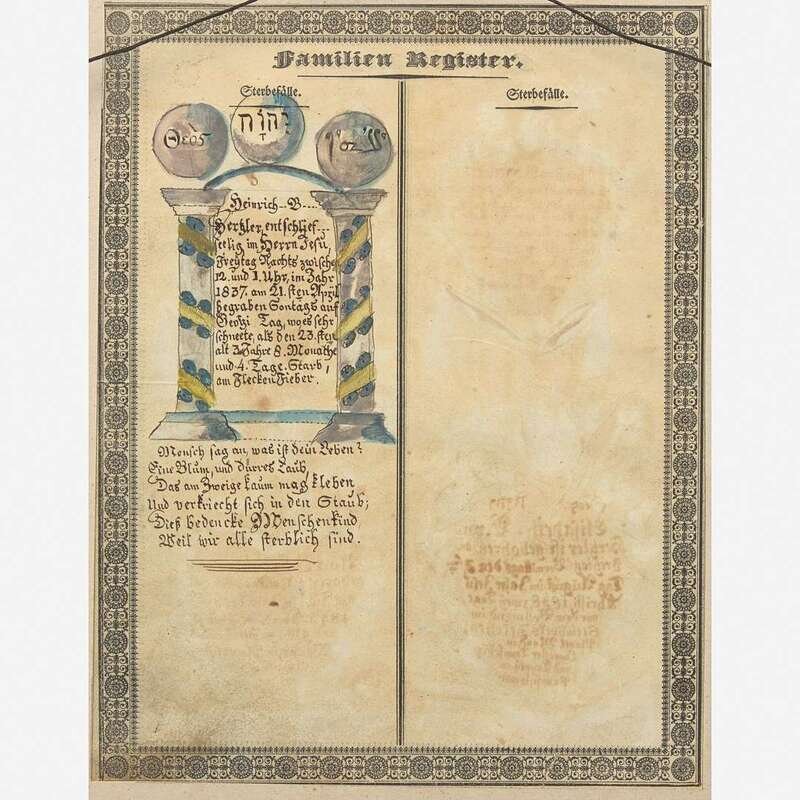 Familien Register.
Sterbefälle.
Sterbefälle.
Θεὸς
יהוה
Heinrich B
Hertzler, entschlief
seelig im Herrn Jesu,
Freytag Nachts zwische
12. und 1. Uhr, im Jahr
1837. am 21.sten April
begraben Sontags auf
Georgi Tag, wo es sehr
schneete, als den 23.sten
alt 3 Jahre 8. Monathe
und 4. Tage. Starb,
am Flecken Fieber.
Mensch sag an, was ist dein Leben?
Eine Blum, und dürres Laub,
Das am Zweige kaum mag kleben
Und verkriecht sich in den Staub;
Dieß bedencke Menschenkind
Weil wir alle sterblich sind.